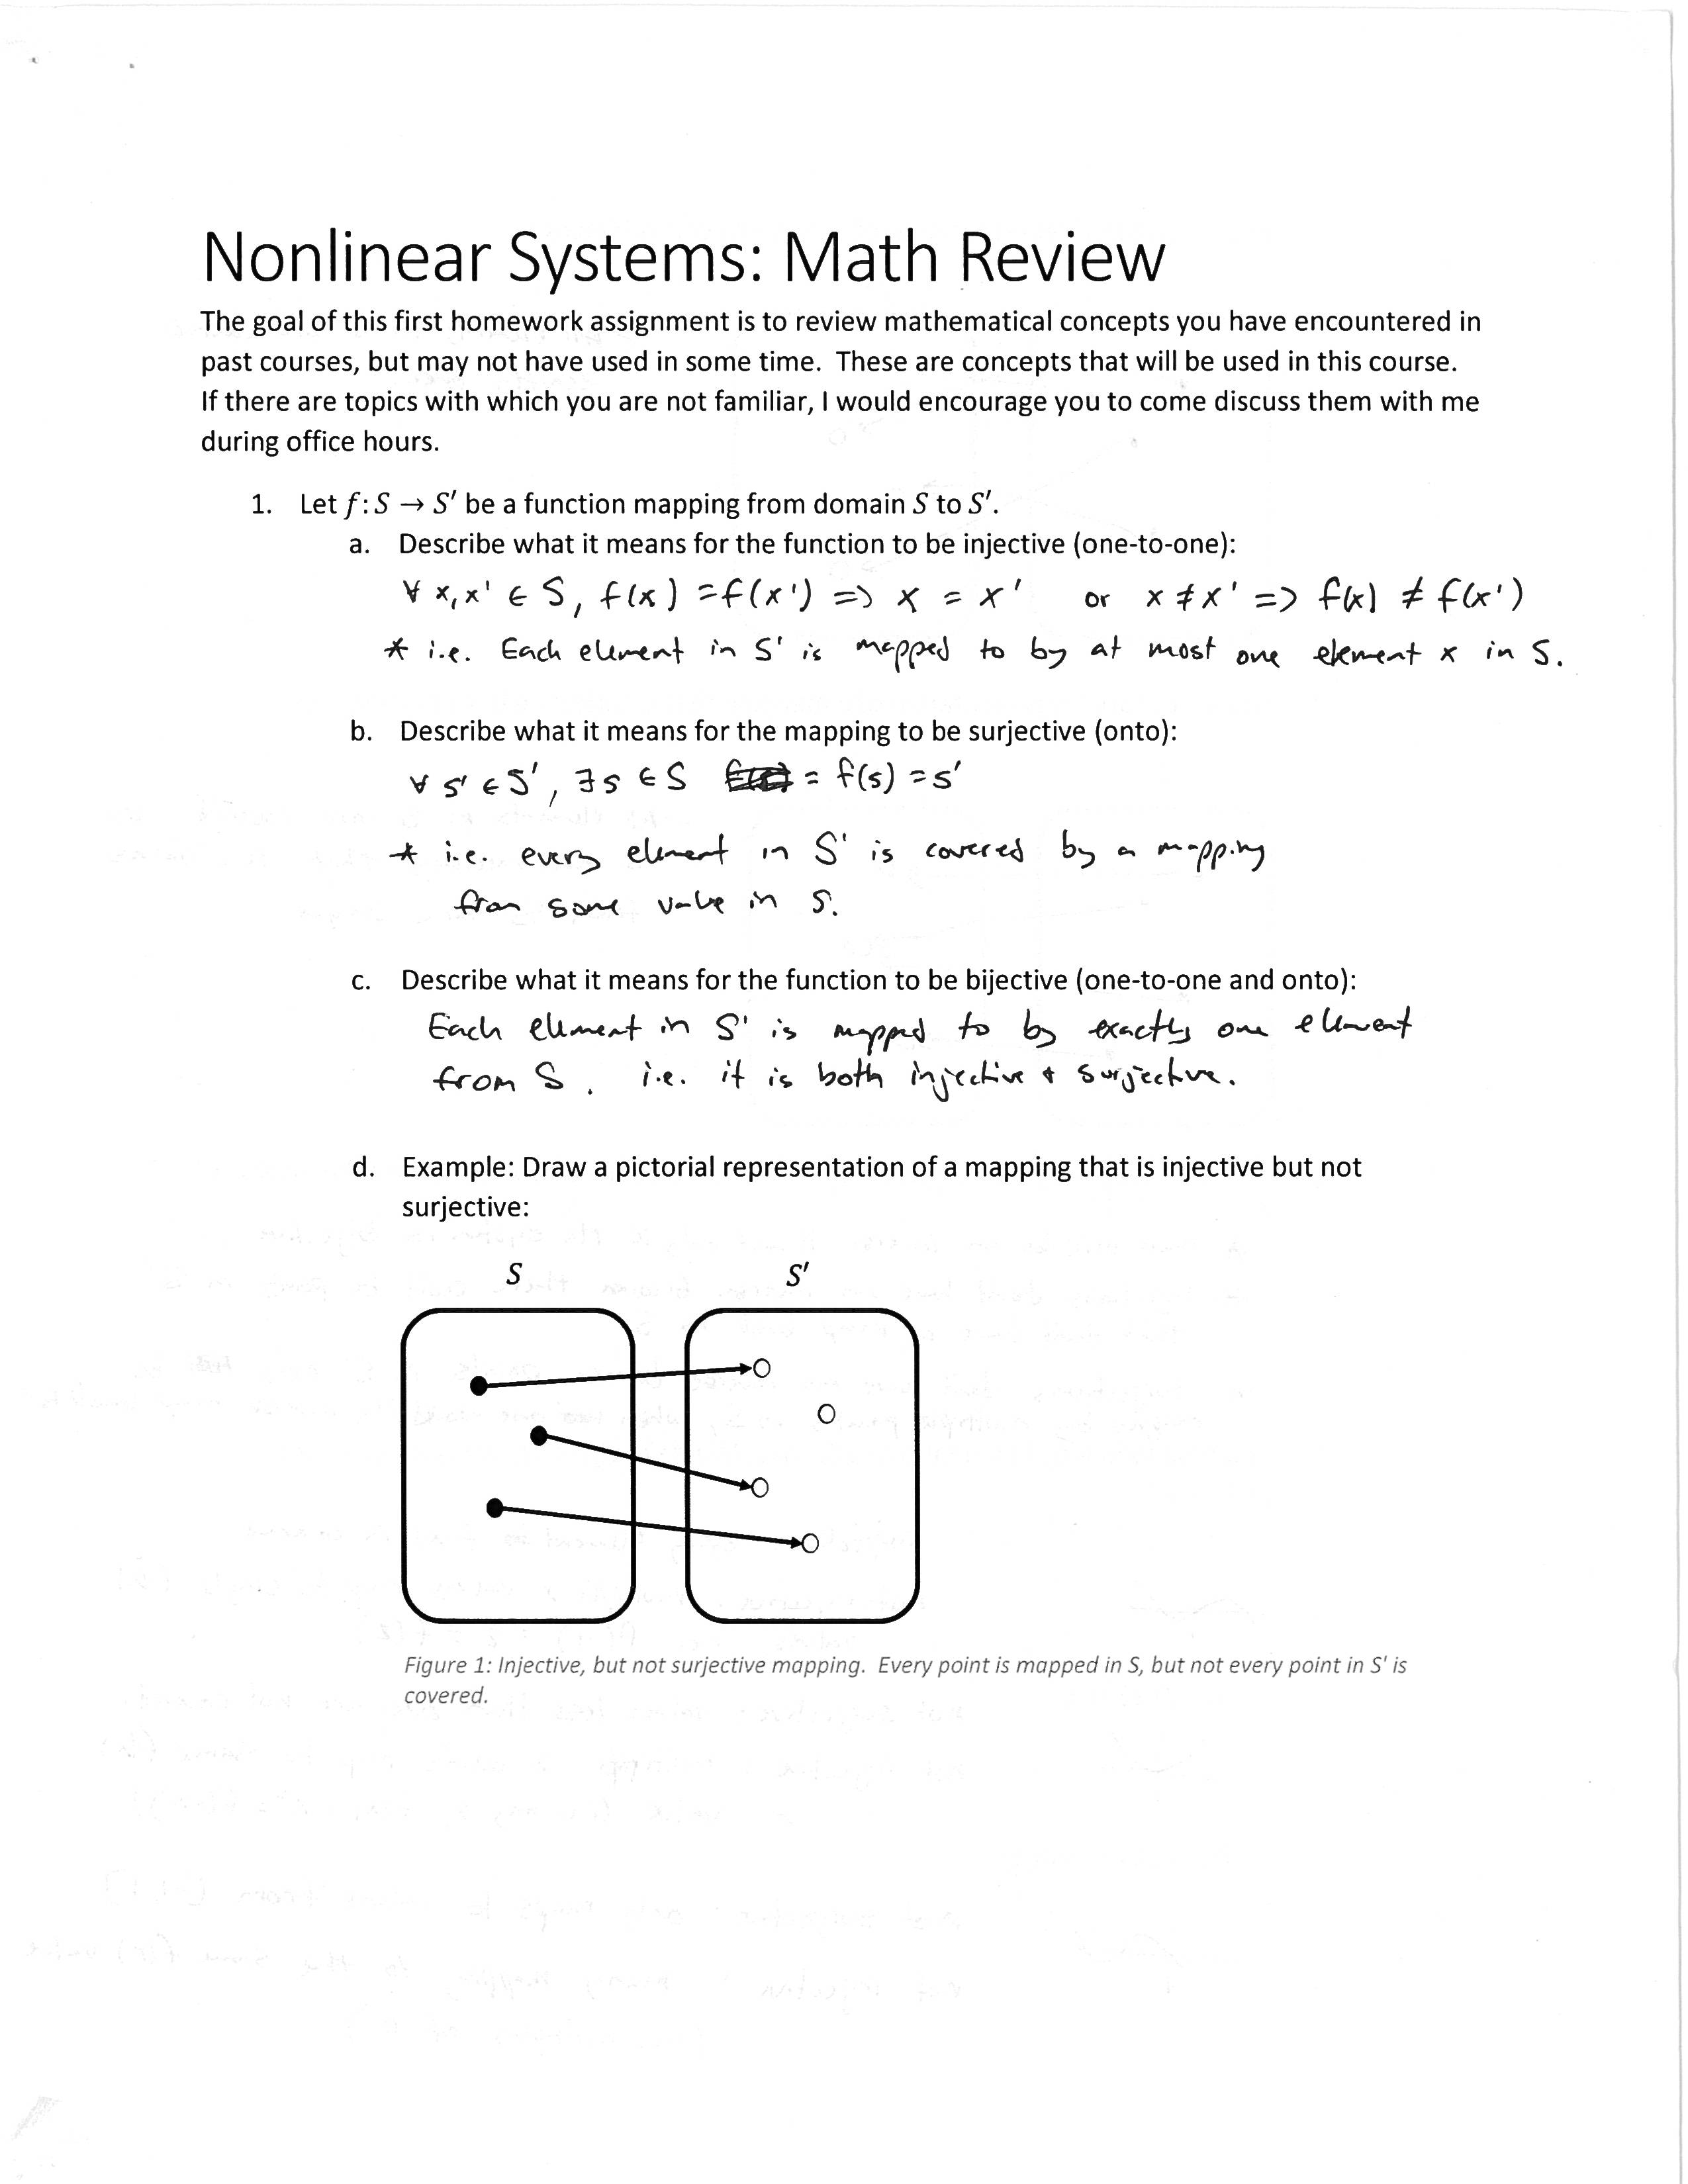 Nonlinear Systems: Math Review
The goal of this first homework assignment is to review mathematical concepts you have encountered in
past courses, but may not have used in some time. These are concepts that will be used in this course.
If there are topics with which you are not familiar, I would encourage you to come discuss them with me
during office hours.
1. Let f: S → S′ be a function mapping from domain S to S′.
a. Describe what it means for the function to be injective (one-to-one):
∀ x, x' ∈ S, f(x) = f(x') => x = x' or x ≠ x' => f(x) ≠ f(x')
* i.e. Each element in S' is mapped to by at most one element x in S.
b. Describe what it means for the mapping to be surjective (onto):
∀ s' ∈ S', ∃ s ∈ S = f(s) = s'
* i.e. every element in S' is covered by a mapping
from some value in S.
c. Describe what it means for the function to be bijective (one-to-one and onto):
Each element in S' is mapped to by exactly one element
from S. i.e. it is both injective + surjective.
d. Example: Draw a pictorial representation of a mapping that is injective but not
surjective:
S S′
Figure 1: Injective, but not surjective mapping. Every point is mapped in S, but not every point in S' is
covered.